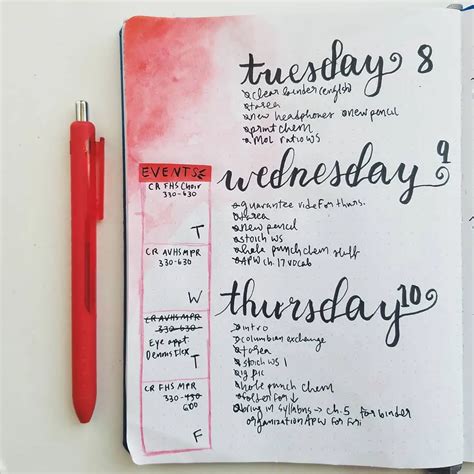 tuesday 8
clear binder (english)
tarea
new headphones new pencil
print chem
mol ratio ws
EVENTS
CR FHS Choir
330-630
T
wednesday 9
guarantee ride for thurs.
tarea
new pencil
stoich ws
hole punch chem stuff
APW ch. 17 vocab
CR AVHS MPR
330-630
W
thursday 10
intro
columbian exchange
tarea
stoich ws 1
ig pic
hole punch chem
folder for ↓
bring in syllabus → ch. 5 for binder
organization APW for Fri
CR AVHS MPR
330-630
Eye appt
Dennis Flex
T
CR FHS MPR
330-430
600
F